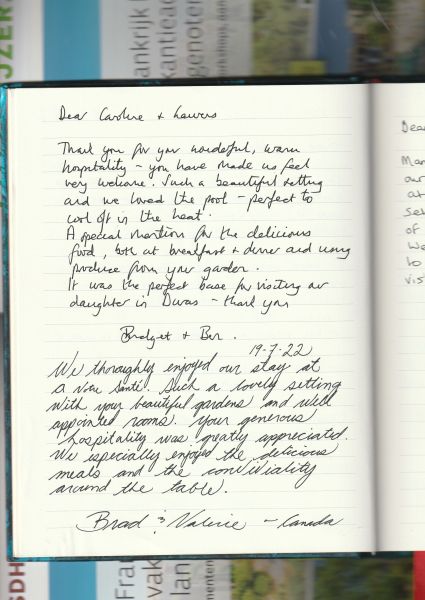 JZER
ankrijk
kantiead
genoten
Dear Caroline + Lauwers
Thank you for your wonderful, warm
hospitality - you have made us feel
very welcome. Such a beautiful setting
and we loved the pool - perfect to
cool off in the heat.
A special mention for the delicious
food, both at breakfast + dinner and using
produce from your garden.
It was the perfect base for visiting our
daughter in Duras - thank you
Bridget + Ben.
19-7-22
We thoroughly enjoyed our stay at
a Votre Santé. Such a lovely setting
with your beautiful gardens and well
appointed rooms. Your generous
hospitality was greatly appreciated.
We especially enjoyed the delicious
meals and the conviviality
around the table.
Brad & Valerie - Canada
Dea
Man
our
at
set
of
We
to
vis
SDH
Fra
vak
lan